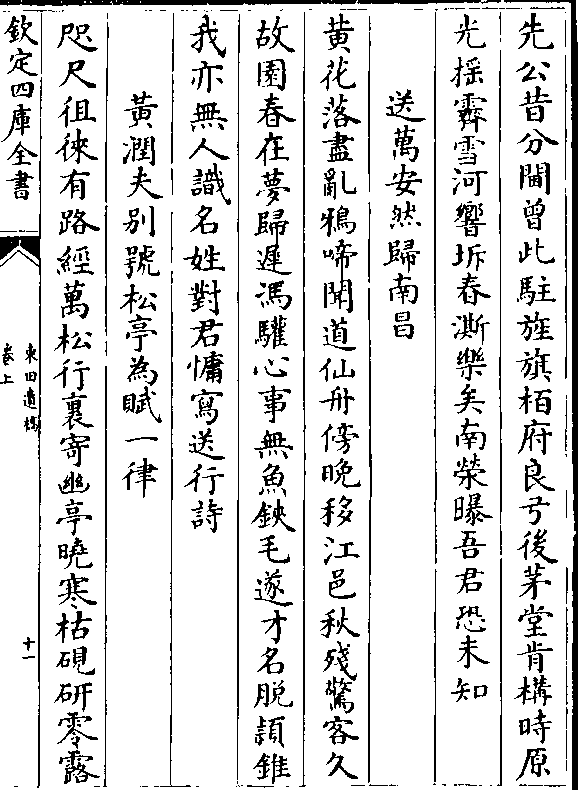 先公昔分閫曾此駐旌旗栢府良弓後茅堂肯構時原
光揺霽雪河響坼春澌樂矣南榮曝吾君恐未知
送萬安然歸南昌
黄花落盡亂鴉啼聞道仙舟傍晚移江邑秋殘驚客久
故園春在夢歸遲馮驩心事無魚鋏毛遂才名脱頴錐
我亦無人識名姓對君慵寫送行詩
黄潤夫别號松亭為賦一律
咫尺徂徠有路經萬松行裏寄幽亭曉寒枯硯研零露
欽定四庫全書
東田遺稿
卷上
十一